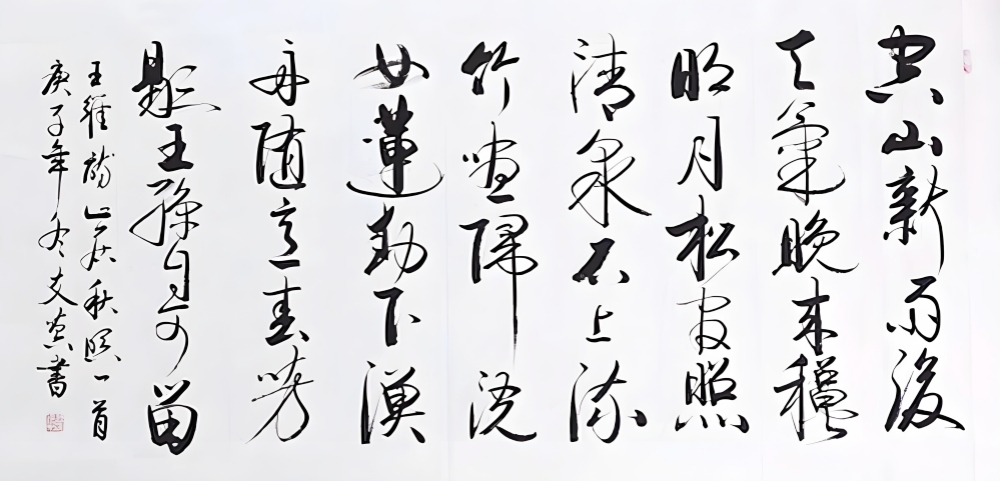 空山新雨後
天氣晚來穐
明月松間照
清泉石上流
竹喧歸浣
女蓮動下漁
舟隨意春芳
歇王孫自可留
王維詩山居秋暝一首
庚子年冬文書